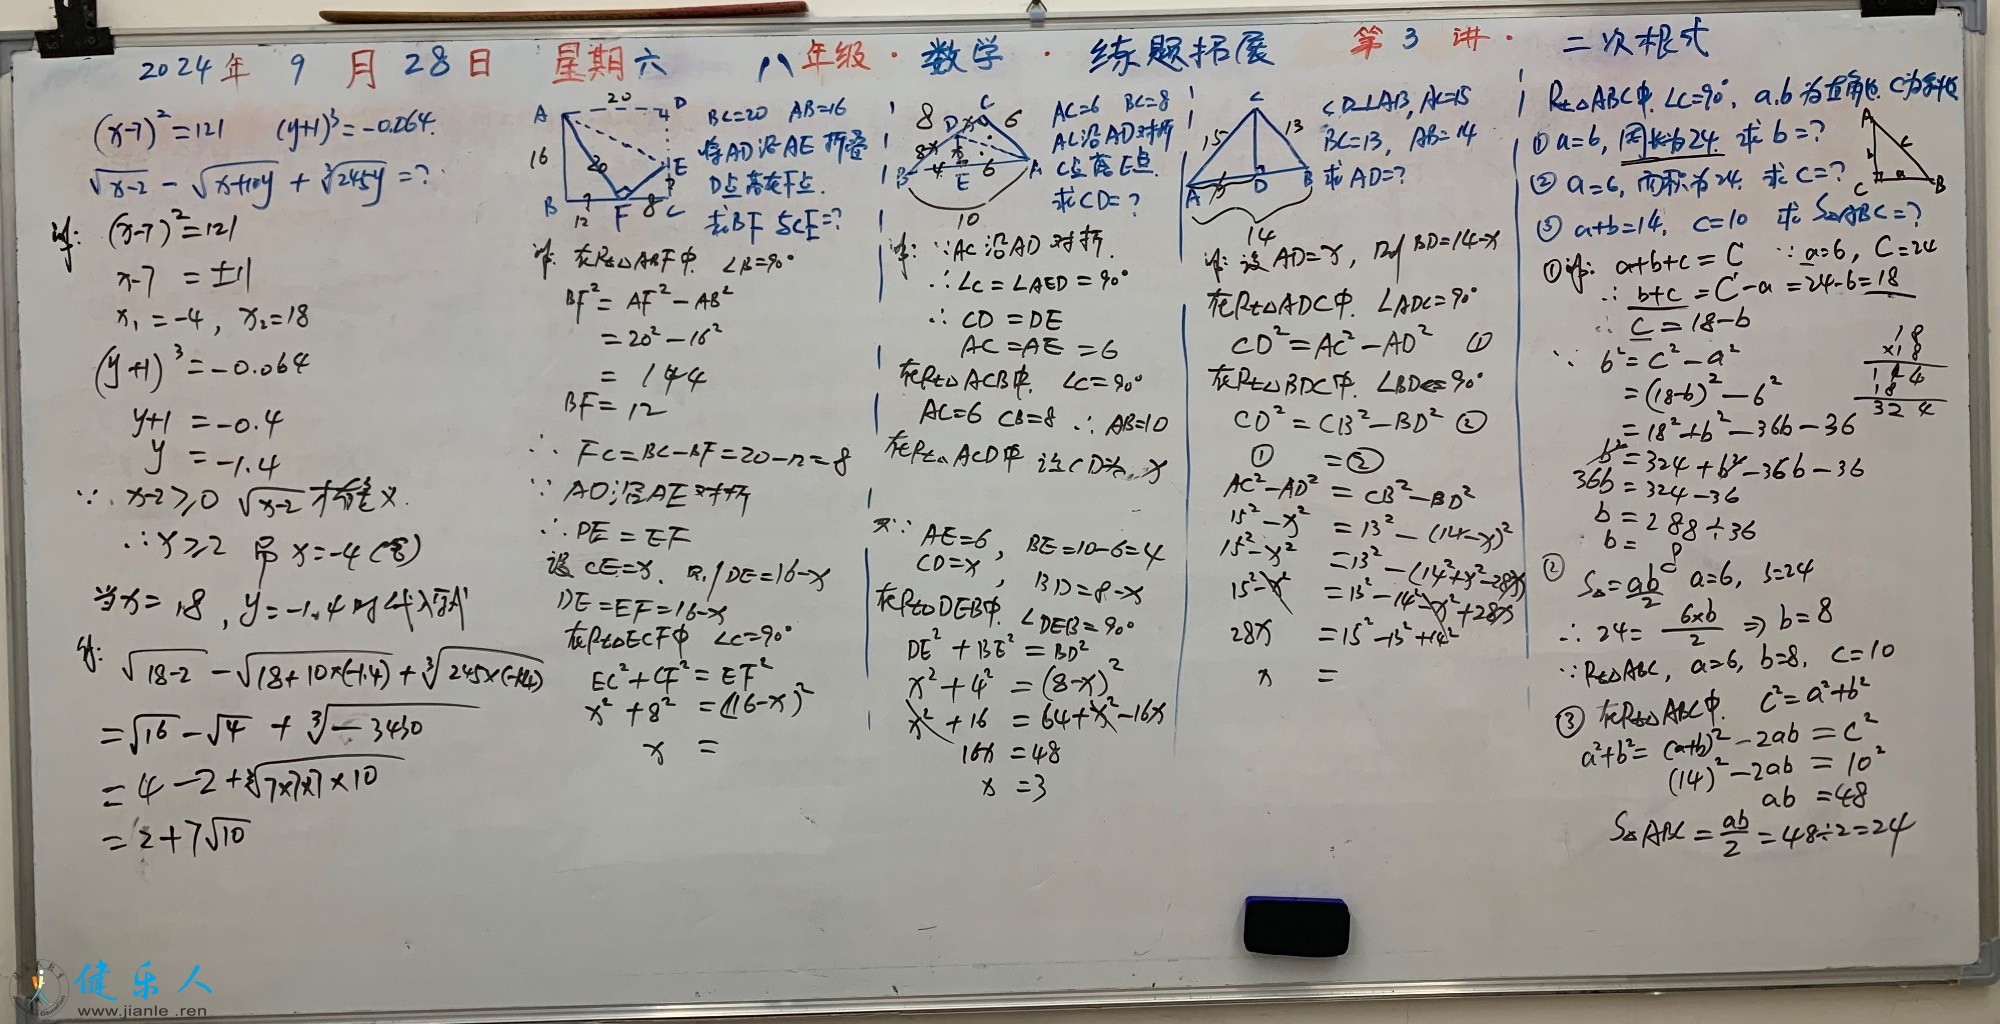 2024年 9 月 28日 星期六 八年级·数学·练题拓展 第 3 讲· 二次根式
(x-7)²=121 (y+1)³=-0.064.
√x-2 - √x+10y + ∛245y =?
解: (x-7)²=121
x-7 = ±11
x₁=-4, x₂=18
(y+1)³=-0.064
y+1 =-0.4
y =-1.4
∵ x-2≥0 √x-2 才有意义.
∴x≥2 而 x=-4(舍)
当x=18, y=-1.4时代入可得
解:
√18-2 - √18+10×(-1.4) + ∛245×(-1.4)
=√16 - √4 + ∛-3430
=4-2+∛7×7×7×10
=2+7√10
A 20 D
16 20 E
B ? 12 F 8 C ?
BC=20 AB=16
将AD沿AE折叠
D点落在F点.
求BF与CE=?
解: 在Rt△ABF中. ∠B=90°
BF²=AF²-AB²
=20²-16²
=144
BF=12
∴ FC=BC-BF=20-12=8
∵ AD沿AE对折
∴DE=EF
设CE=x. 则DE=16-x
DE=EF=16-x
在Rt△ECF中 ∠C=90°
EC²+CF²=EF²
x²+8²=(16-x)²
x =
8 D x C 6
8-x x
B 4 E 6 A
10
AC=6 BC=8
AC沿AD对折
C点落E点.
求CD=?
解: ∵AC沿AD对折.
∴∠C=∠AED=90°
∴ CD=DE
AC=AE=6
在Rt△ACB中. ∠C=90°
AC=6 CB=8 ∴AB=10
在Rt△ACD中 设CD为x
又∵ AE=6, BE=10-6=4
CD=x, BD=8-x
在Rt△DEB中. ∠DEB=90°
DE²+BE²=BD²
x²+4²=(8-x)²
x²+16=64+x²-16x
16x=48
x=3
C
15 13
A x D B
14
CD⊥AB, AC=15
BC=13, AB=14
求AD=?
解: 设AD=x, 则BD=14-x
在Rt△ADC中. ∠ADC=90°
CD²=AC²-AD² ①
在Rt△BDC中. ∠BDC=90°
CD²=CB²-BD² ②
① =②
AC²-AD²=CB²-BD²
15²-x²=13²-(14-x)²
15²-x²=13²-(14²+x²-28x)
15²-x²=13²-14²-x²+28x
28x=15²-13²+14²
x =
Rt△ABC中. ∠C=90°, a.b为直角边. C为斜边
①a=6, 周长为24. 求b=?
②a=6, 面积为24. 求c=?
③a+b=14, c=10 求S△ABC=?
A
b c
C a B
①解: a+b+c=C ∵a=6, C=24
∴ b+c=C-a=24-6=18
∴ C=18-b
∵ b²=c²-a²
=(18-b)²-6²
=18²+b²-36b-36
b²=324+b²-36b-36
36b=324-36
b=288÷36
b=8
18
×18
144
18
324
② S△=ab/2 a=6, S=24
∴ 24=6×b/2 ⇒ b=8
∵Rt△ABC, a=6, b=8, c=10
③ 在Rt△ABC中. c²=a²+b²
a²+b²=(a+b)²-2ab=c²
(14)²-2ab=10²
ab=48
S△ABC=ab/2=48÷2=24
健乐人
www.jianle.ren